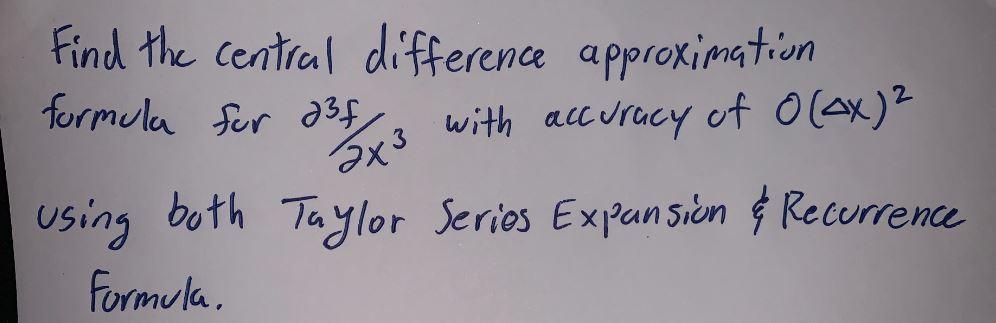 Find the central difference approximation
formula for ∂³f/∂x³ with accuracy of O(Δx)²
using both Taylor Series Expansion & Recurrence
Formula.